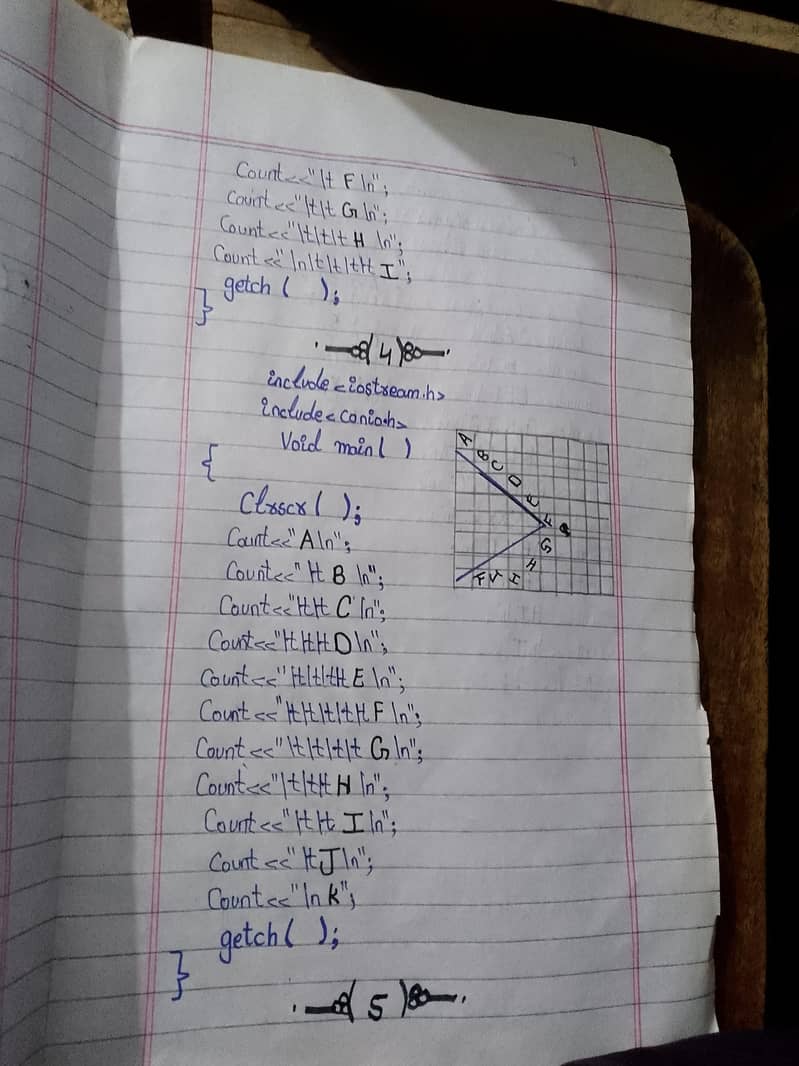 Count<<"\t F \n";
Count<<"\t\t G \n";
Count<<"\t\t\t H \n";
Count<<"\n\t\t\t\t I";
getch ( );
}
4
include <iostream.h>
include <conio.h>
Void main ( )
{
Clrscr ( );
Count<<"A\n";
Count<<"\t B \n";
Count<<"\t\t C \n";
Count<<"\t\t\t D \n";
Count<<"\t\t\t\t E \n";
Count<<"\t\t\t\t\t F \n";
Count<<"\t\t\t\t G \n";
Count<<"\t\t\t H \n";
Count<<"\t\t I \n";
Count<<"\t J \n";
Count<<"\n K";
getch ( );
}
5
A
B
C
D
E
F
G
H
I